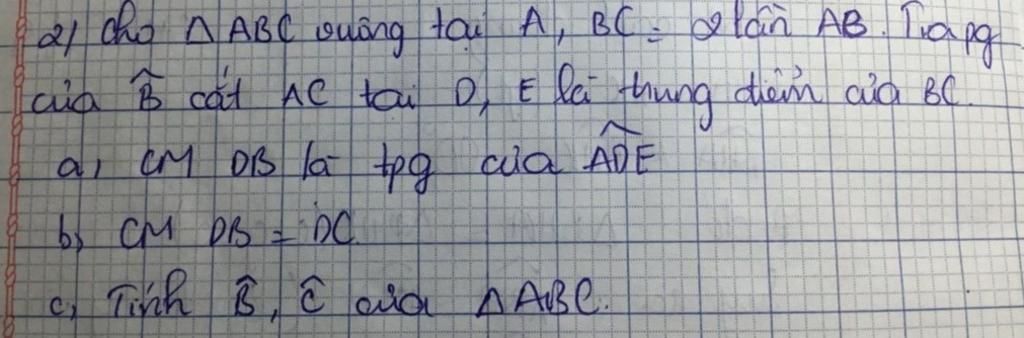 2) Cho Δ ABC vuông tại A, BC = 2 lần AB. Tia pg
của B̂ cắt AC tại D, E là trung điểm của BC.
a, CM DB là tpg của ÂDE
b, CM DB = DC.
c, Tính B̂, Ĉ của Δ ABC.